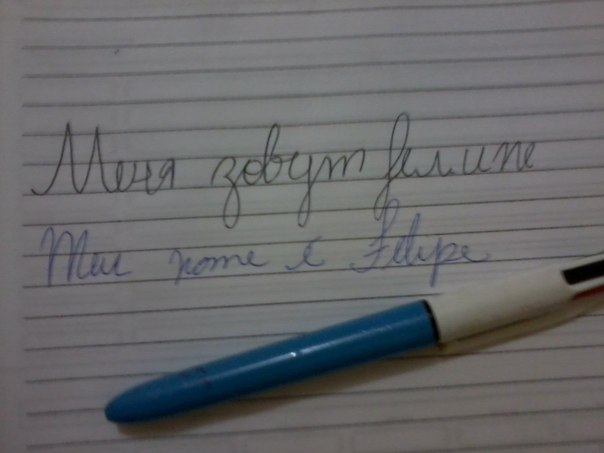 Меня зовут фелипе
Meu nome é Felipe